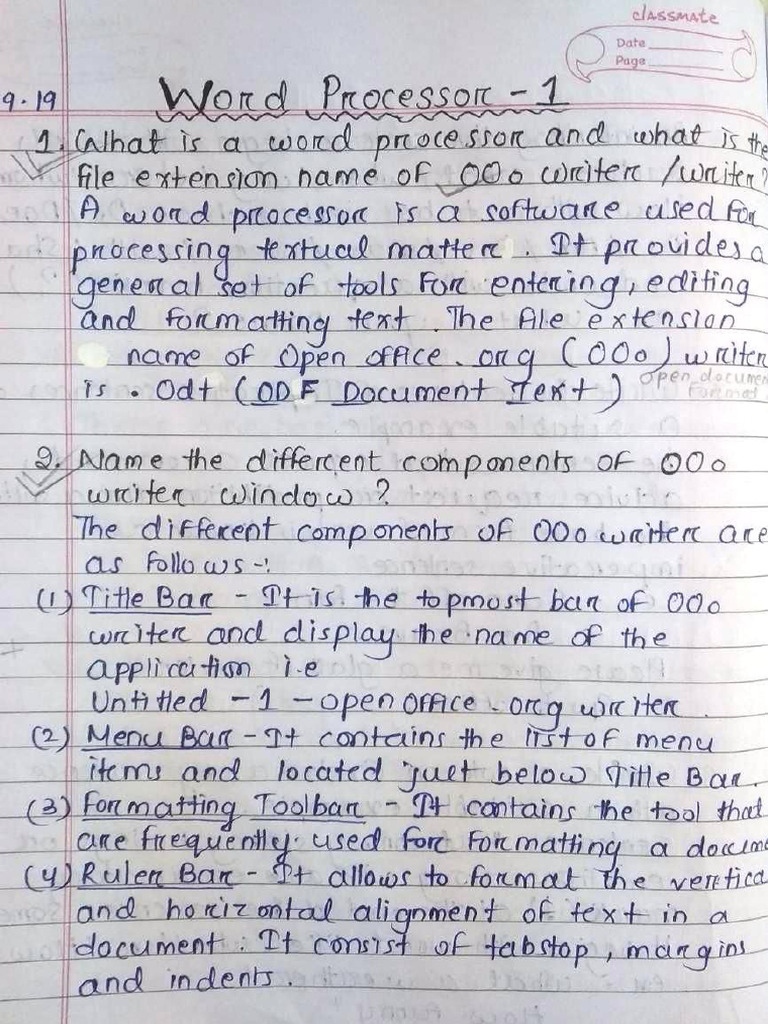 classmate
Date
Page
9.19
Word Processor - 1
1. What is a word processor and what is the
file extension name of OOo writer /writer?
A word processor is a software used for
processing textual matter. It provides a
general set of tools for entering, editing
and formatting text. The file extension
name of Open office.org (OOo) writer
is .Odt (ODF Document Text)
open document
Format
2. Name the different components of OOo
writer window?
The different components of OOo writer are
as follows -:
(1) Title Bar - It is the topmost bar of OOo
writer and display the name of the
application i.e
Untitled - 1 - open office.org writer.
(2) Menu Bar - It contains the list of menu
items and located just below Title Bar.
(3) Formatting Toolbar - It contains the tool that
are frequently used for formatting a docume
(4) Ruler Bar - It allows to format the vertica
and horizontal alignment of text in a
document. It consist of tabstop, margins
and indents.